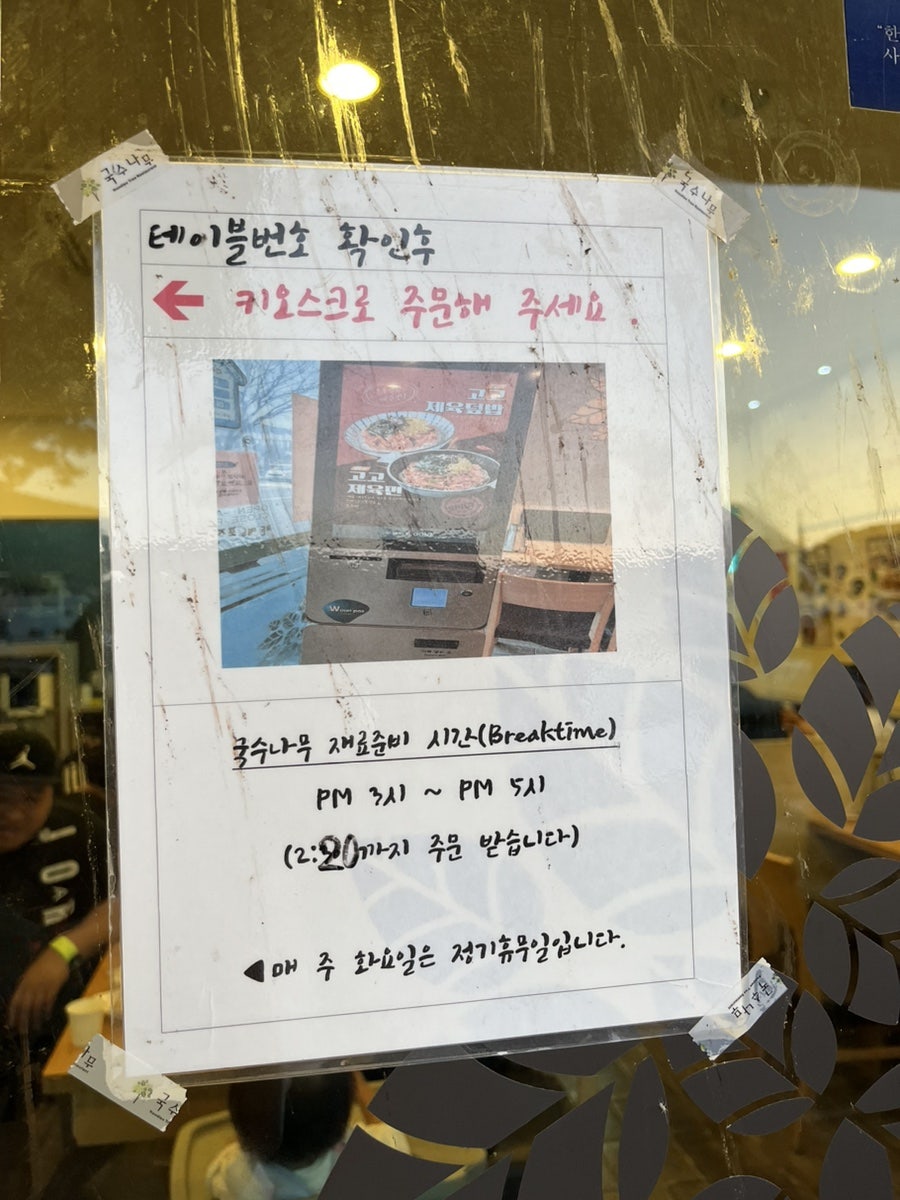 "한
사
국수나무
국수나무
테이블번호 확인후
← 키오스크로 주문해 주세요.
고고
제육덮밥
고고
제육면
국수나무 재료준비 시간(Breaktime)
PM 3시 ~ PM 5시
(2:20까지 주문 받습니다)
◀매 주 화요일은 정기휴무일입니다.
국수나무
나무
국수